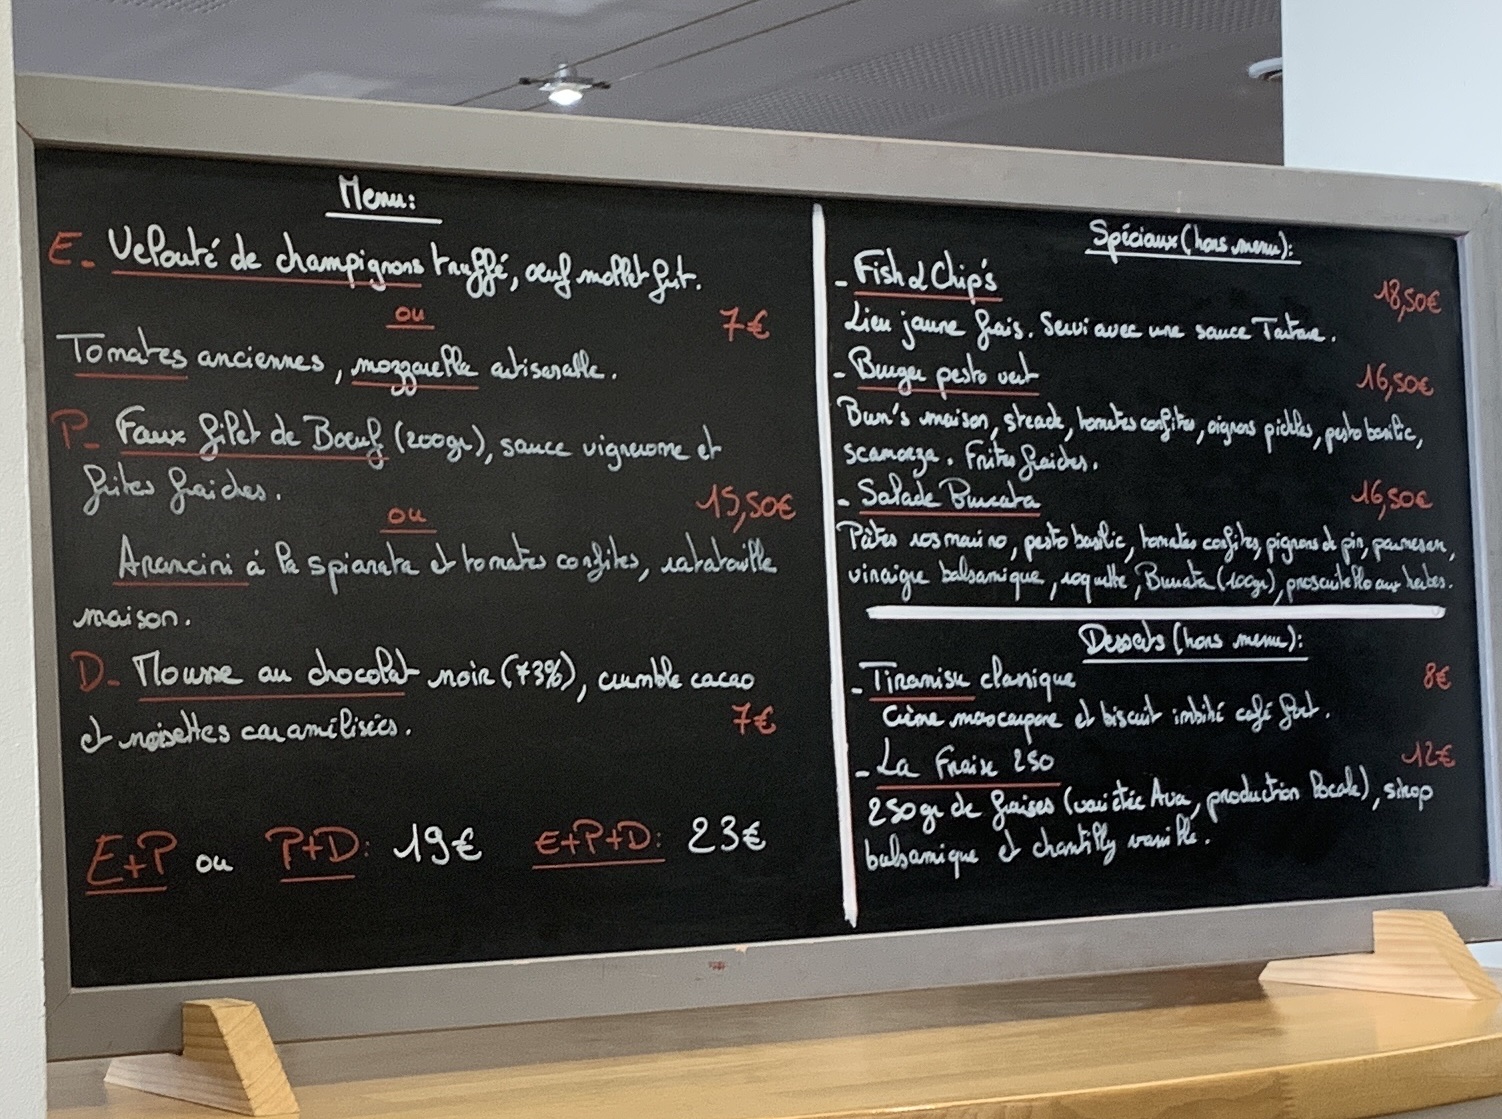 Menu:
E- Velouté de champignons truffé, œuf mollet frit.
ou
7€
Tomates anciennes, mozzarella artisanale.
P- Faux filet de Bœuf (200gr), sauce vigneronne et
frites fraiches.
15,50€
ou
Arancini à la spianata et tomates confites, ratatouille
maison.
D- Mousse au chocolat noir (73%), crumble cacao
et noisettes caramélisées.
7€
E+P ou P+D: 19€ E+P+D: 23€
Spéciaux (hors menu):
- Fish & Chip's
18,50€
Lieu jaune frais. Servi avec une sauce Tartare.
- Burger pesto vert
16,50€
Bun's maison, steack, tomates confites, oignons pickles, pesto basilic,
scamorza. Frites fraiches.
- Salade Burrata
16,50€
Pâtes rosmarino, pesto basilic, tomates confites, pignons de pin, parmesan,
vinaigre balsamique, roquette, Burrata (100gr), proscuitello aux herbes.
Desserts (hors menu):
- Tiramisu classique
8€
Crème mascarpone et biscuit imbibé café fort.
- La Fraise 250
12€
250gr de fraises (variétée Ava, production locale), sirop
balsamique et chantilly vanille.